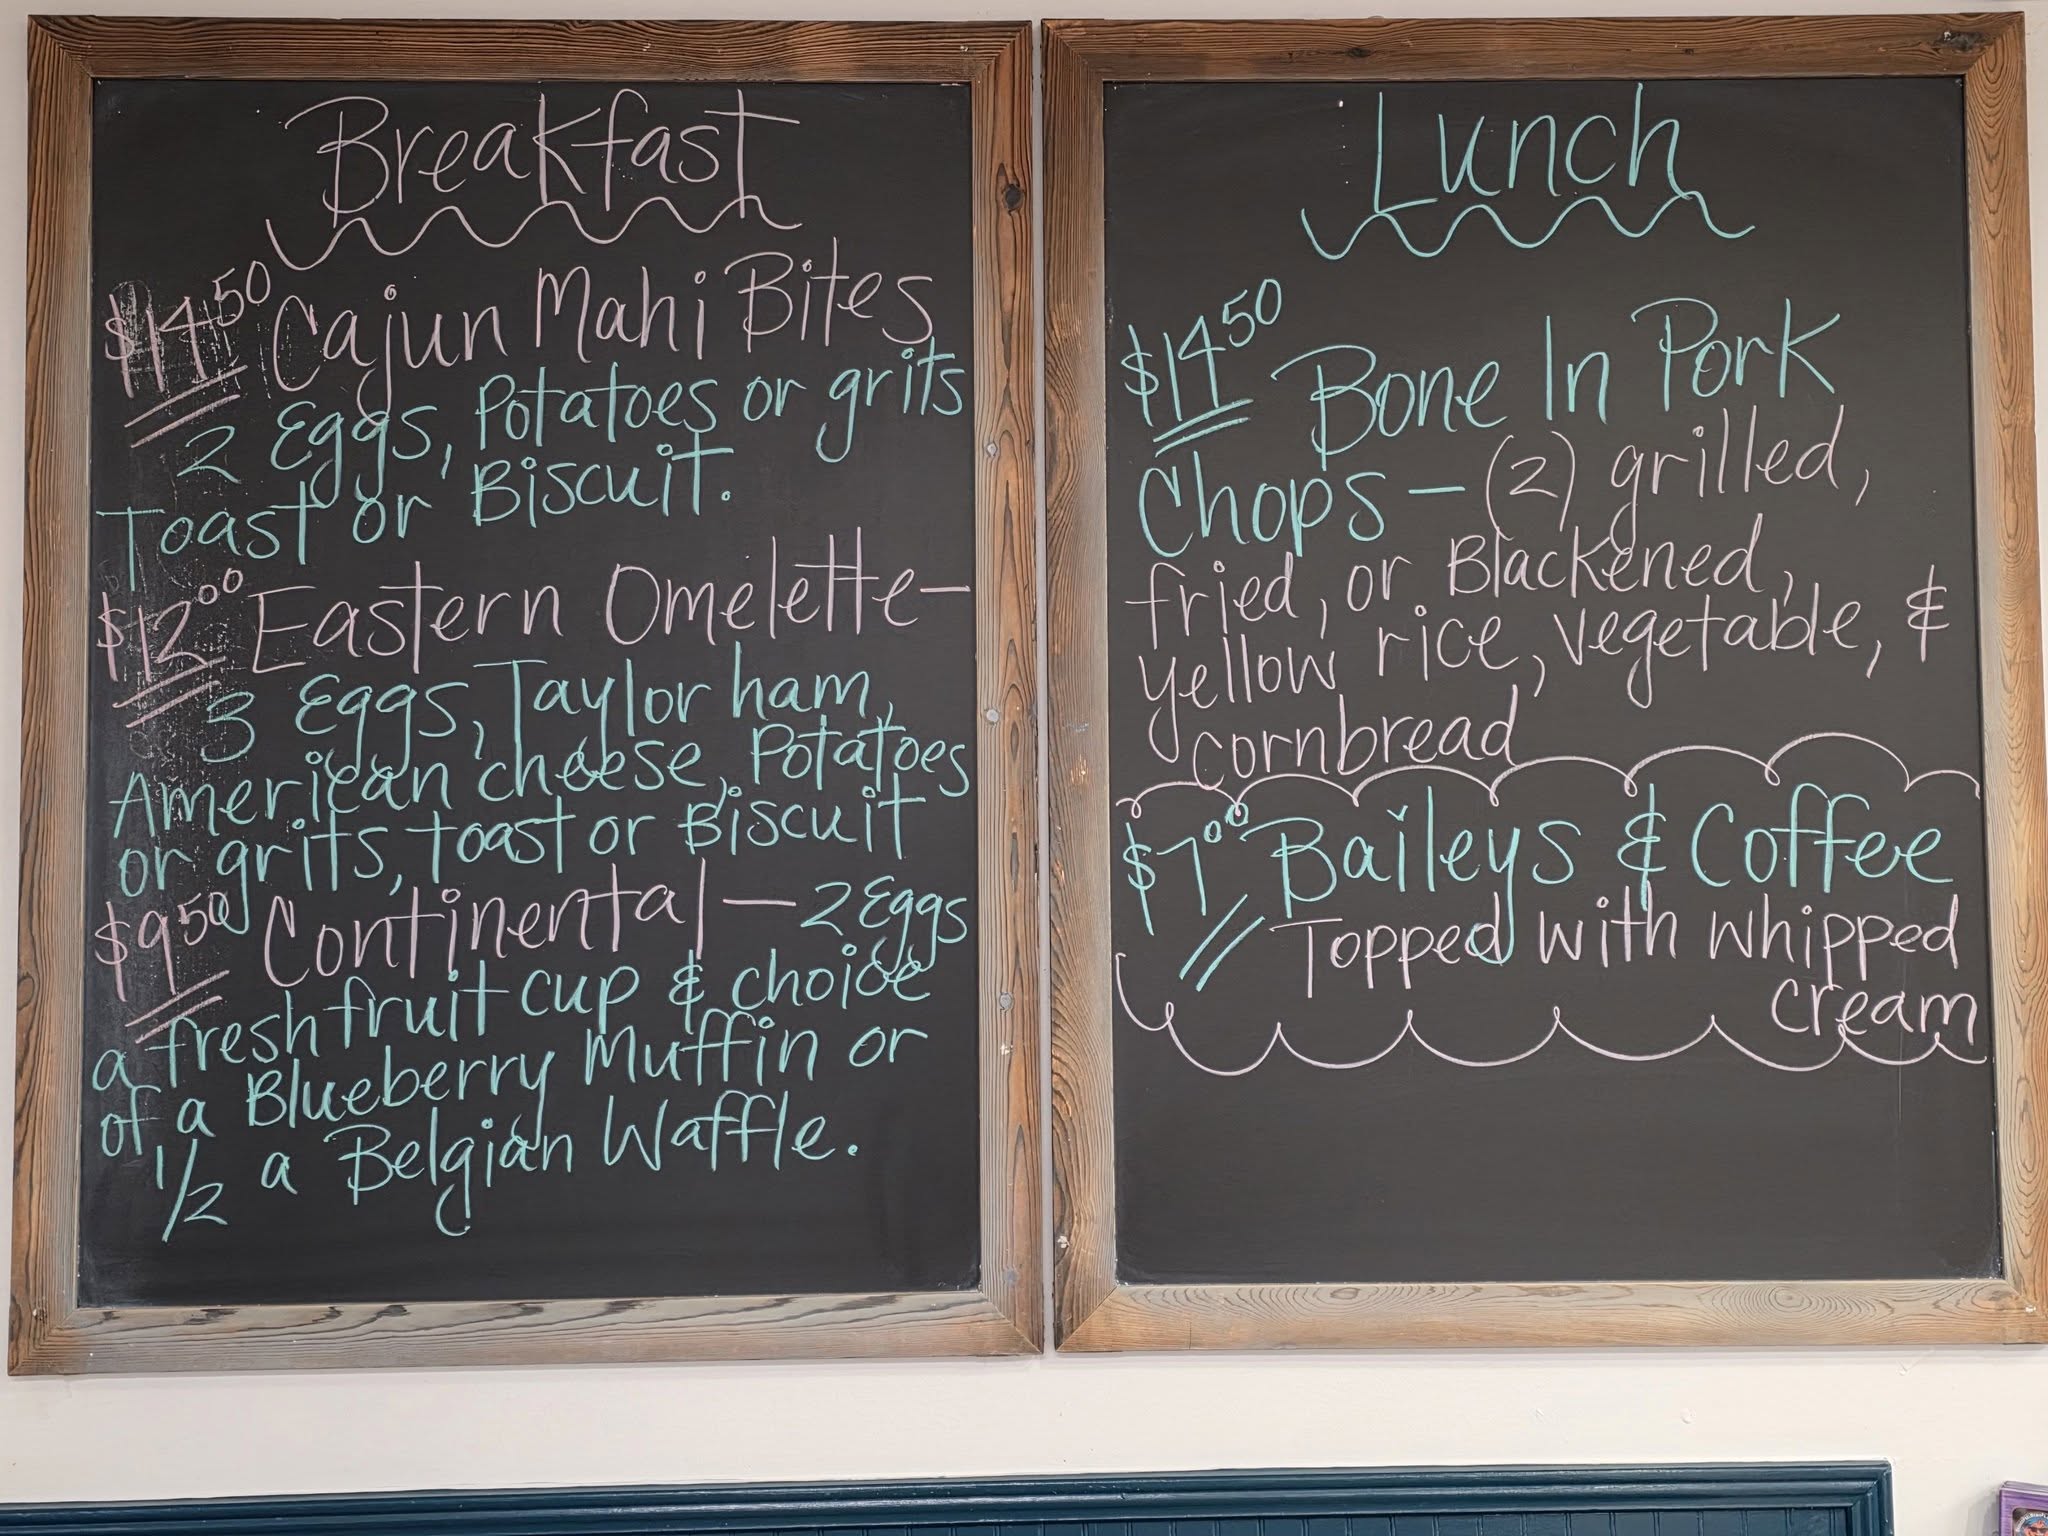 Breakfast
$14.50 Cajun Mahi Bites
2 Eggs, Potatoes or grits
Toast or Biscuit.
$12.00 Eastern Omelette-
3 Eggs, Taylor ham,
American cheese, Potatoes
or grits, toast or Biscuit
$9.50 Continental - 2 Eggs
a fresh fruit cup & choice
of a Blueberry Muffin or
1/2 a Belgian Waffle.
Lunch
$14.50 Bone In Pork
Chops - (2) grilled,
fried, or Blackened,
yellow rice, vegetable, &
cornbread
$7.00 Baileys & Coffee
Topped with whipped
cream